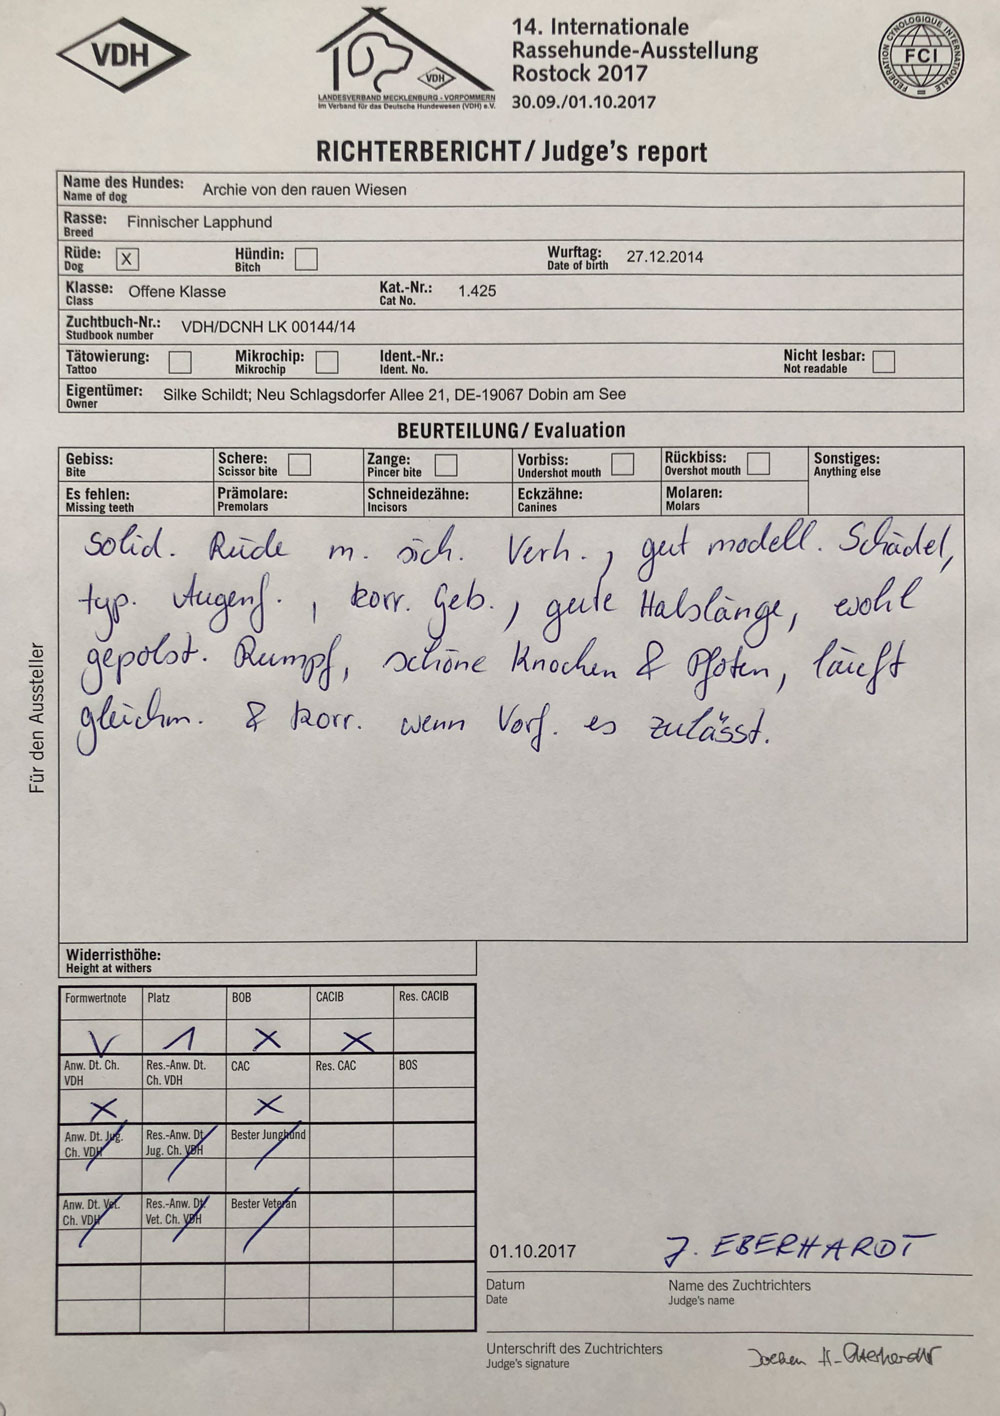 VDH
VDH
LANDESVERBAND MECKLENBURG - VORPOMMERN
im Verband für das Deutsche Hundewesen (VDH) e.V.
14. Internationale
Rassehunde-Ausstellung
Rostock 2017
30.09./01.10.2017
FEDERATION CYNOLOGIQUE INTERNATIONALE
FCI
RICHTERBERICHT / Judge's report
Name des Hundes: Archie von den rauen Wiesen
Name of dog
Rasse: Finnischer Lapphund
Breed
Rüde: X Hündin: Wurftag: 27.12.2014
Dog Bitch Date of birth
Klasse: Offene Klasse Kat.-Nr.: 1.425
Class Cat No.
Zuchtbuch-Nr.: VDH/DCNH LK 00144/14
Studbook number
Tätowierung: Mikrochip: Ident.-Nr.: Nicht lesbar:
Tattoo Mikrochip Ident. No. Not readable
Eigentümer: Silke Schildt; Neu Schlagsdorfer Allee 21, DE-19067 Dobin am See
Owner
BEURTEILUNG / Evaluation
Gebiss: Schere: Zange: Vorbiss: Rückbiss: Sonstiges:
Bite Scissor bite Pincer bite Undershot mouth Overshot mouth Anything else
Es fehlen: Prämolare: Schneidezähne: Eckzähne: Molaren:
Missing teeth Premolars Incisors Canines Molars
Solid. Rüde m. sich. Verh., gut modell. Schädel,
typ. Augenf., korr. Geb., gute Halslänge, wohl
gepolst. Rumpf, schöne Knochen & Pfoten, läuft
gleichm. & korr. wenn Vorf. es zulässt.
Für den Aussteller
Widerristhöhe:
Height at withers
Formwertnote Platz BOB CACIB Res. CACIB
V 1 X X
Anw. Dt. Ch. Res.-Anw. Dt. CAC Res. CAC BOS
VDH Ch. VDH
X X
Anw. Dt. Jug. Res.-Anw. Dt. Bester Junghund
Ch. VDH Jug. Ch. VDH
Anw. Dt. Vet. Res.-Anw. Dt. Bester Veteran
Ch. VDH Vet. Ch. VDH
01.10.2017 J. EBERHARDT
Datum Name des Zuchtrichters
Date Judge's name
Unterschrift des Zuchtrichters Jochen H. Eberhardt
Judge's signature